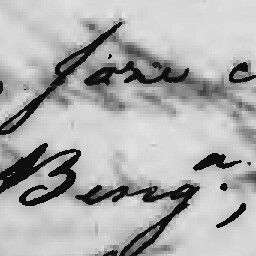 José c
Beng.ª,